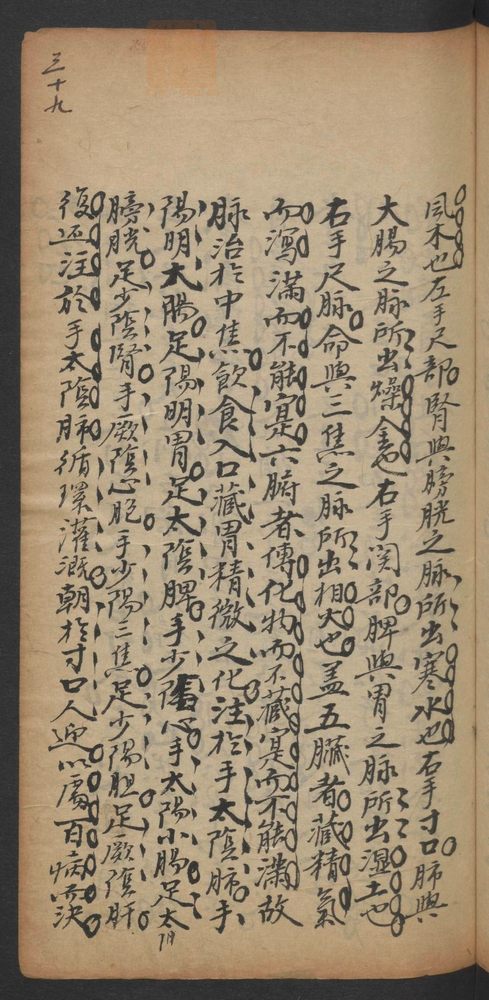 三十九
風木也左手尺部腎與膀胱之脉所出寒水也右手寸口肺與
大腸之脉所出燥金也右手関部脾與胃之脉所出湿土也
右手尺脉命與三焦之脉所出相火也盖五臓者藏精氣
而瀉滿而不能寔六腑者傳化物而不藏寔而不能滿故
脉治於中焦飲食入口藏胃精微之化注於手太陰肺手
陽明大腸足陽明胃足太陰脾手少陰心手太陽小腸足太陽
膀胱足少陰腎手厥陰心胞手少陽三焦足少陽胆足厥陰肝
復还注於手太陰肺循環灌溉朝於寸口人迎以處百病而决